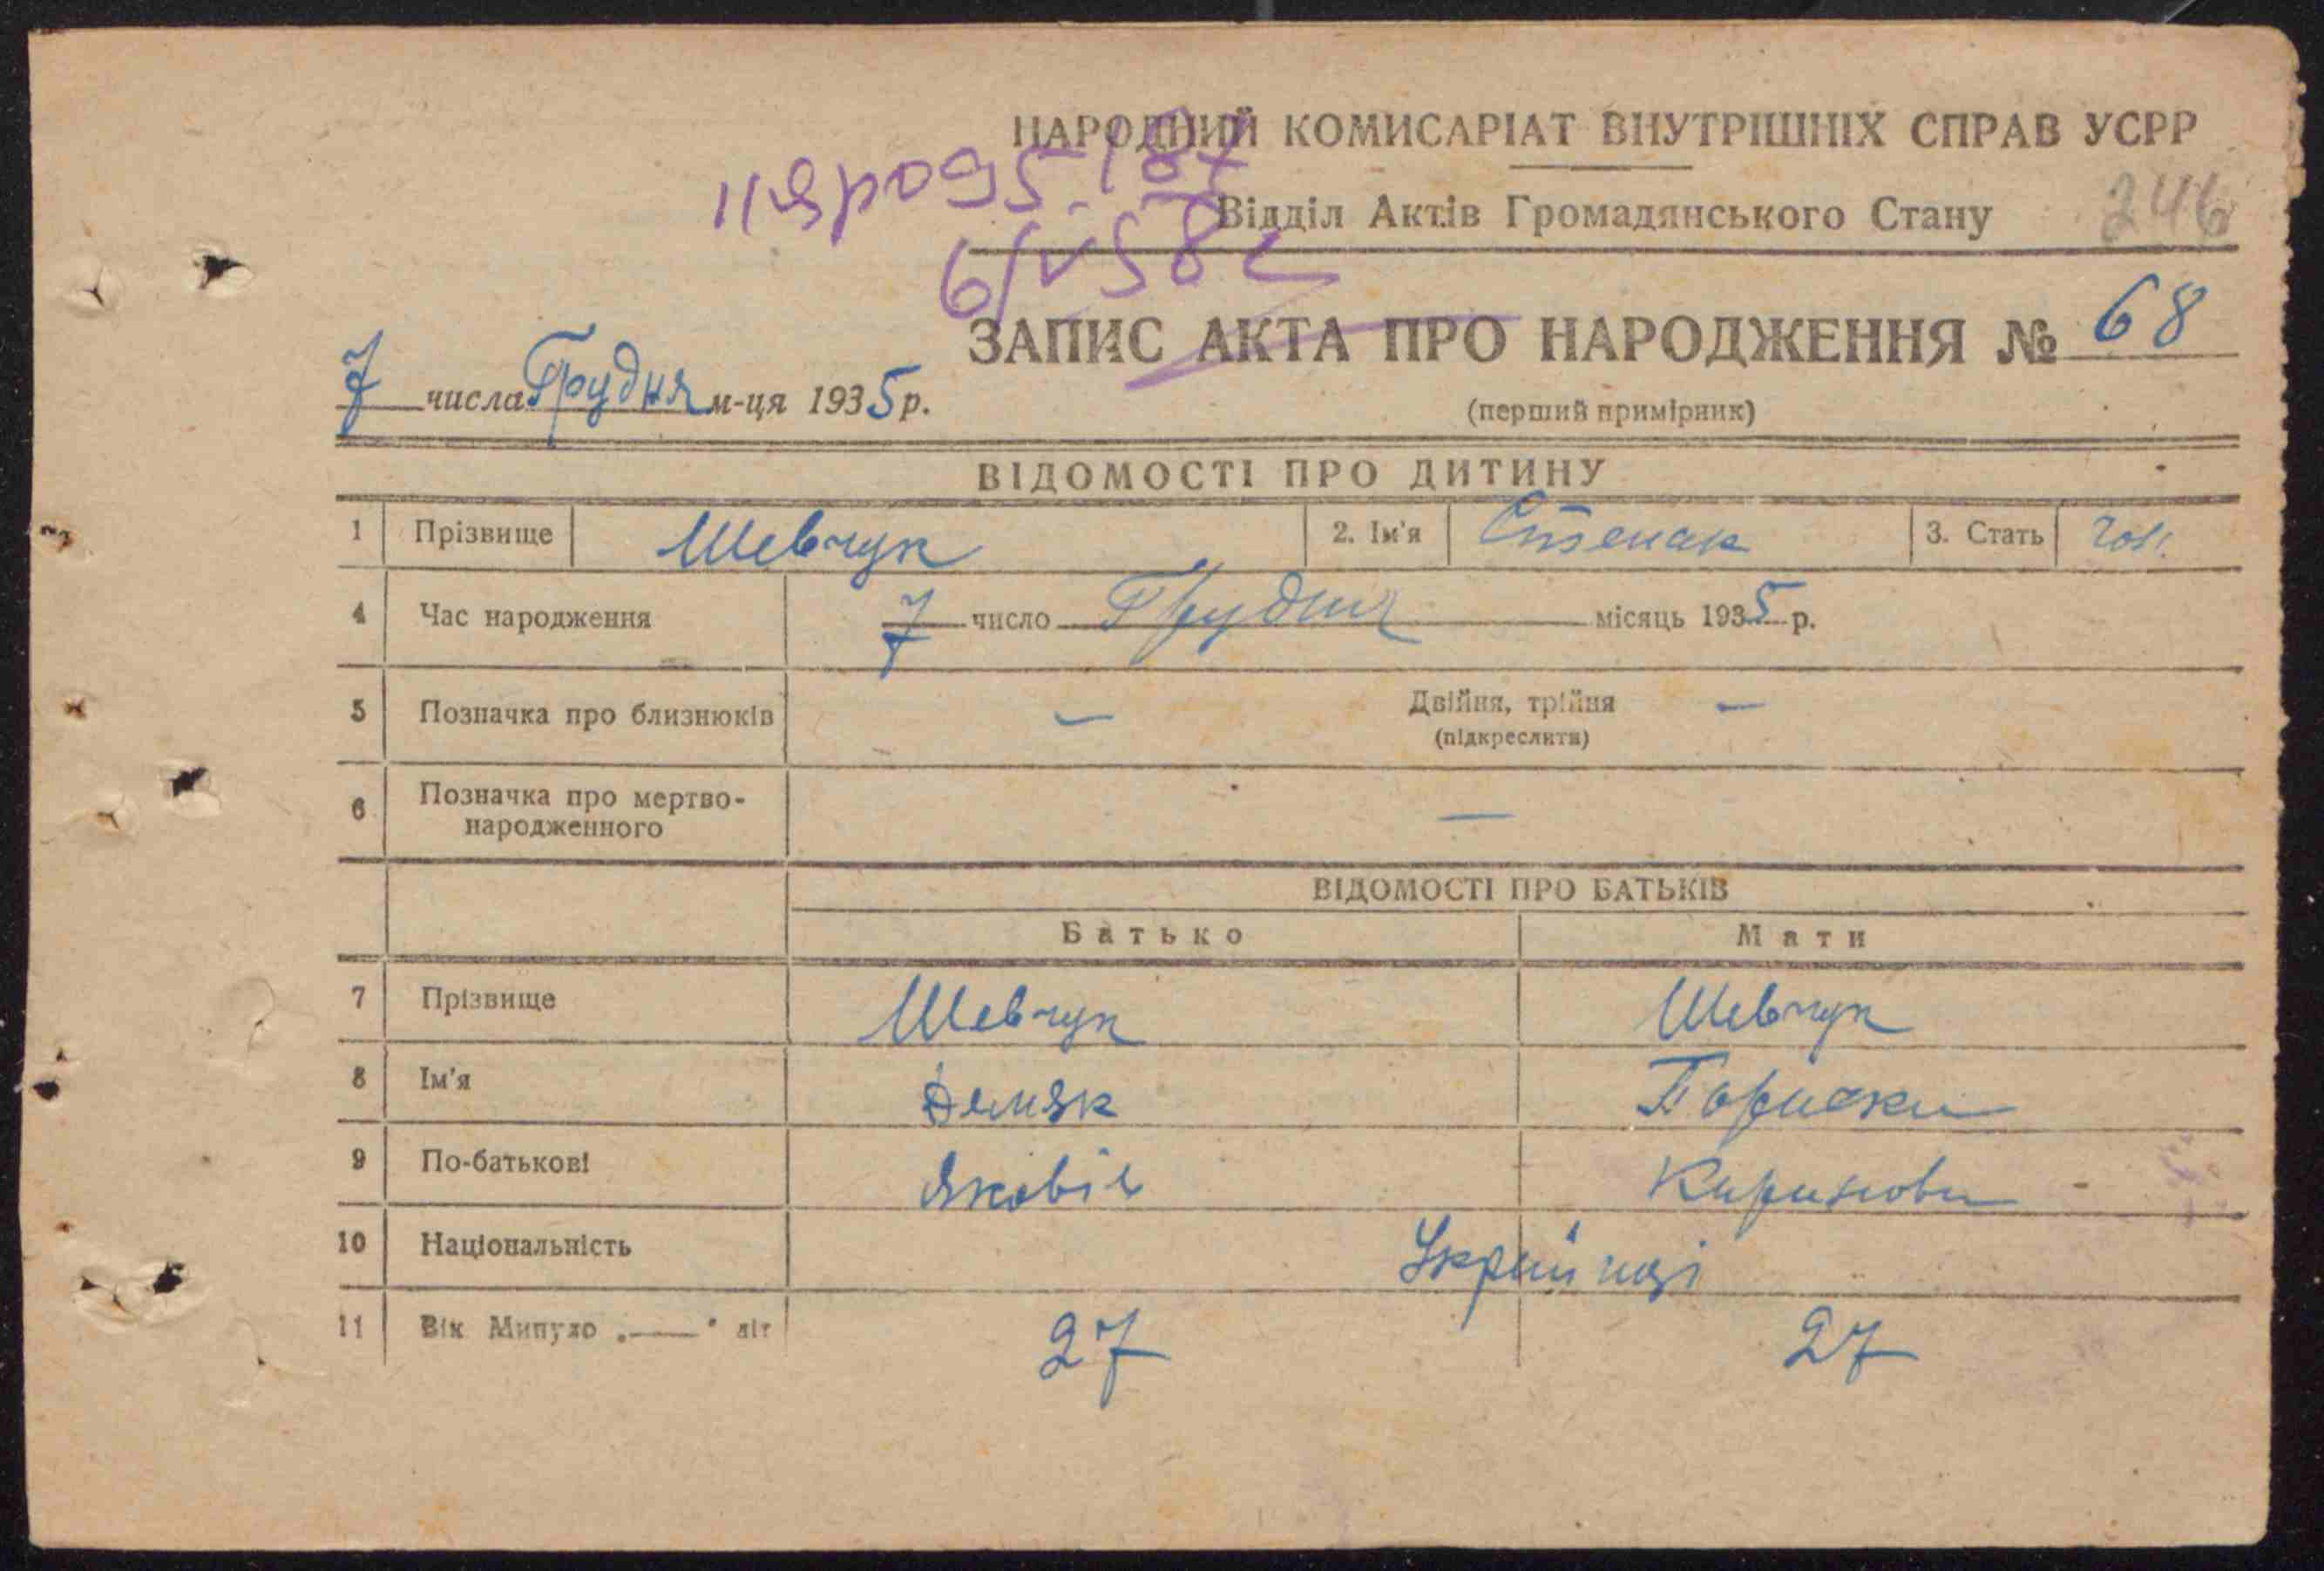 НАРОДНИЙ КОМИСАРІАТ ВНУТРІШНІХ СПРАВ УСРР
Відділ Актів Громадянського Стану
246
ЗАПИС АКТА ПРО НАРОДЖЕННЯ № 68
7 числа Грудня м-ця 1935 р.
(перший примірник)
ВІДОМОСТІ ПРО ДИТИНУ
1 Прізвище Шевчук 2. Ім'я Степак 3. Стать чол.
4 Час народження 7 число Грудня місяць 1935 р.
5 Позначка про близнюків — Двійня, трійня —
(підкреслити)
6 Позначка про мертво-
народженного —
ВІДОМОСТІ ПРО БАТЬКІВ
Батько Мати
7 Прізвище Шевчук Шевчук
8 Ім'я Демяк
9 По-батькові Яковів
10 Національність
11 Вік Минуло „—" літ 27 27